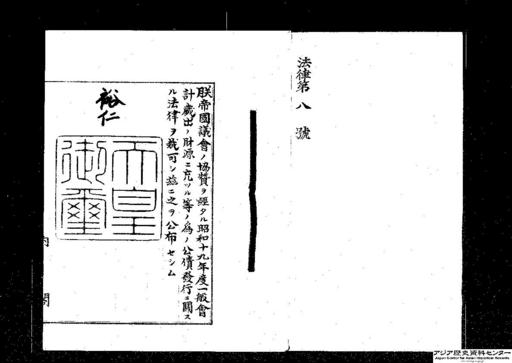 法律第八號
朕帝國議會ノ協贊ヲ經タル昭和十九年度一般會
計歲出ノ財源ニ充ツル等ノ爲ノ公債發行ニ關ス
ル法律ヲ裁可シ茲ニ之ヲ公布セシム
裕仁
天皇
御璽
內閣
アジア歴史資料センター
Japan Center for Asian Historical Records